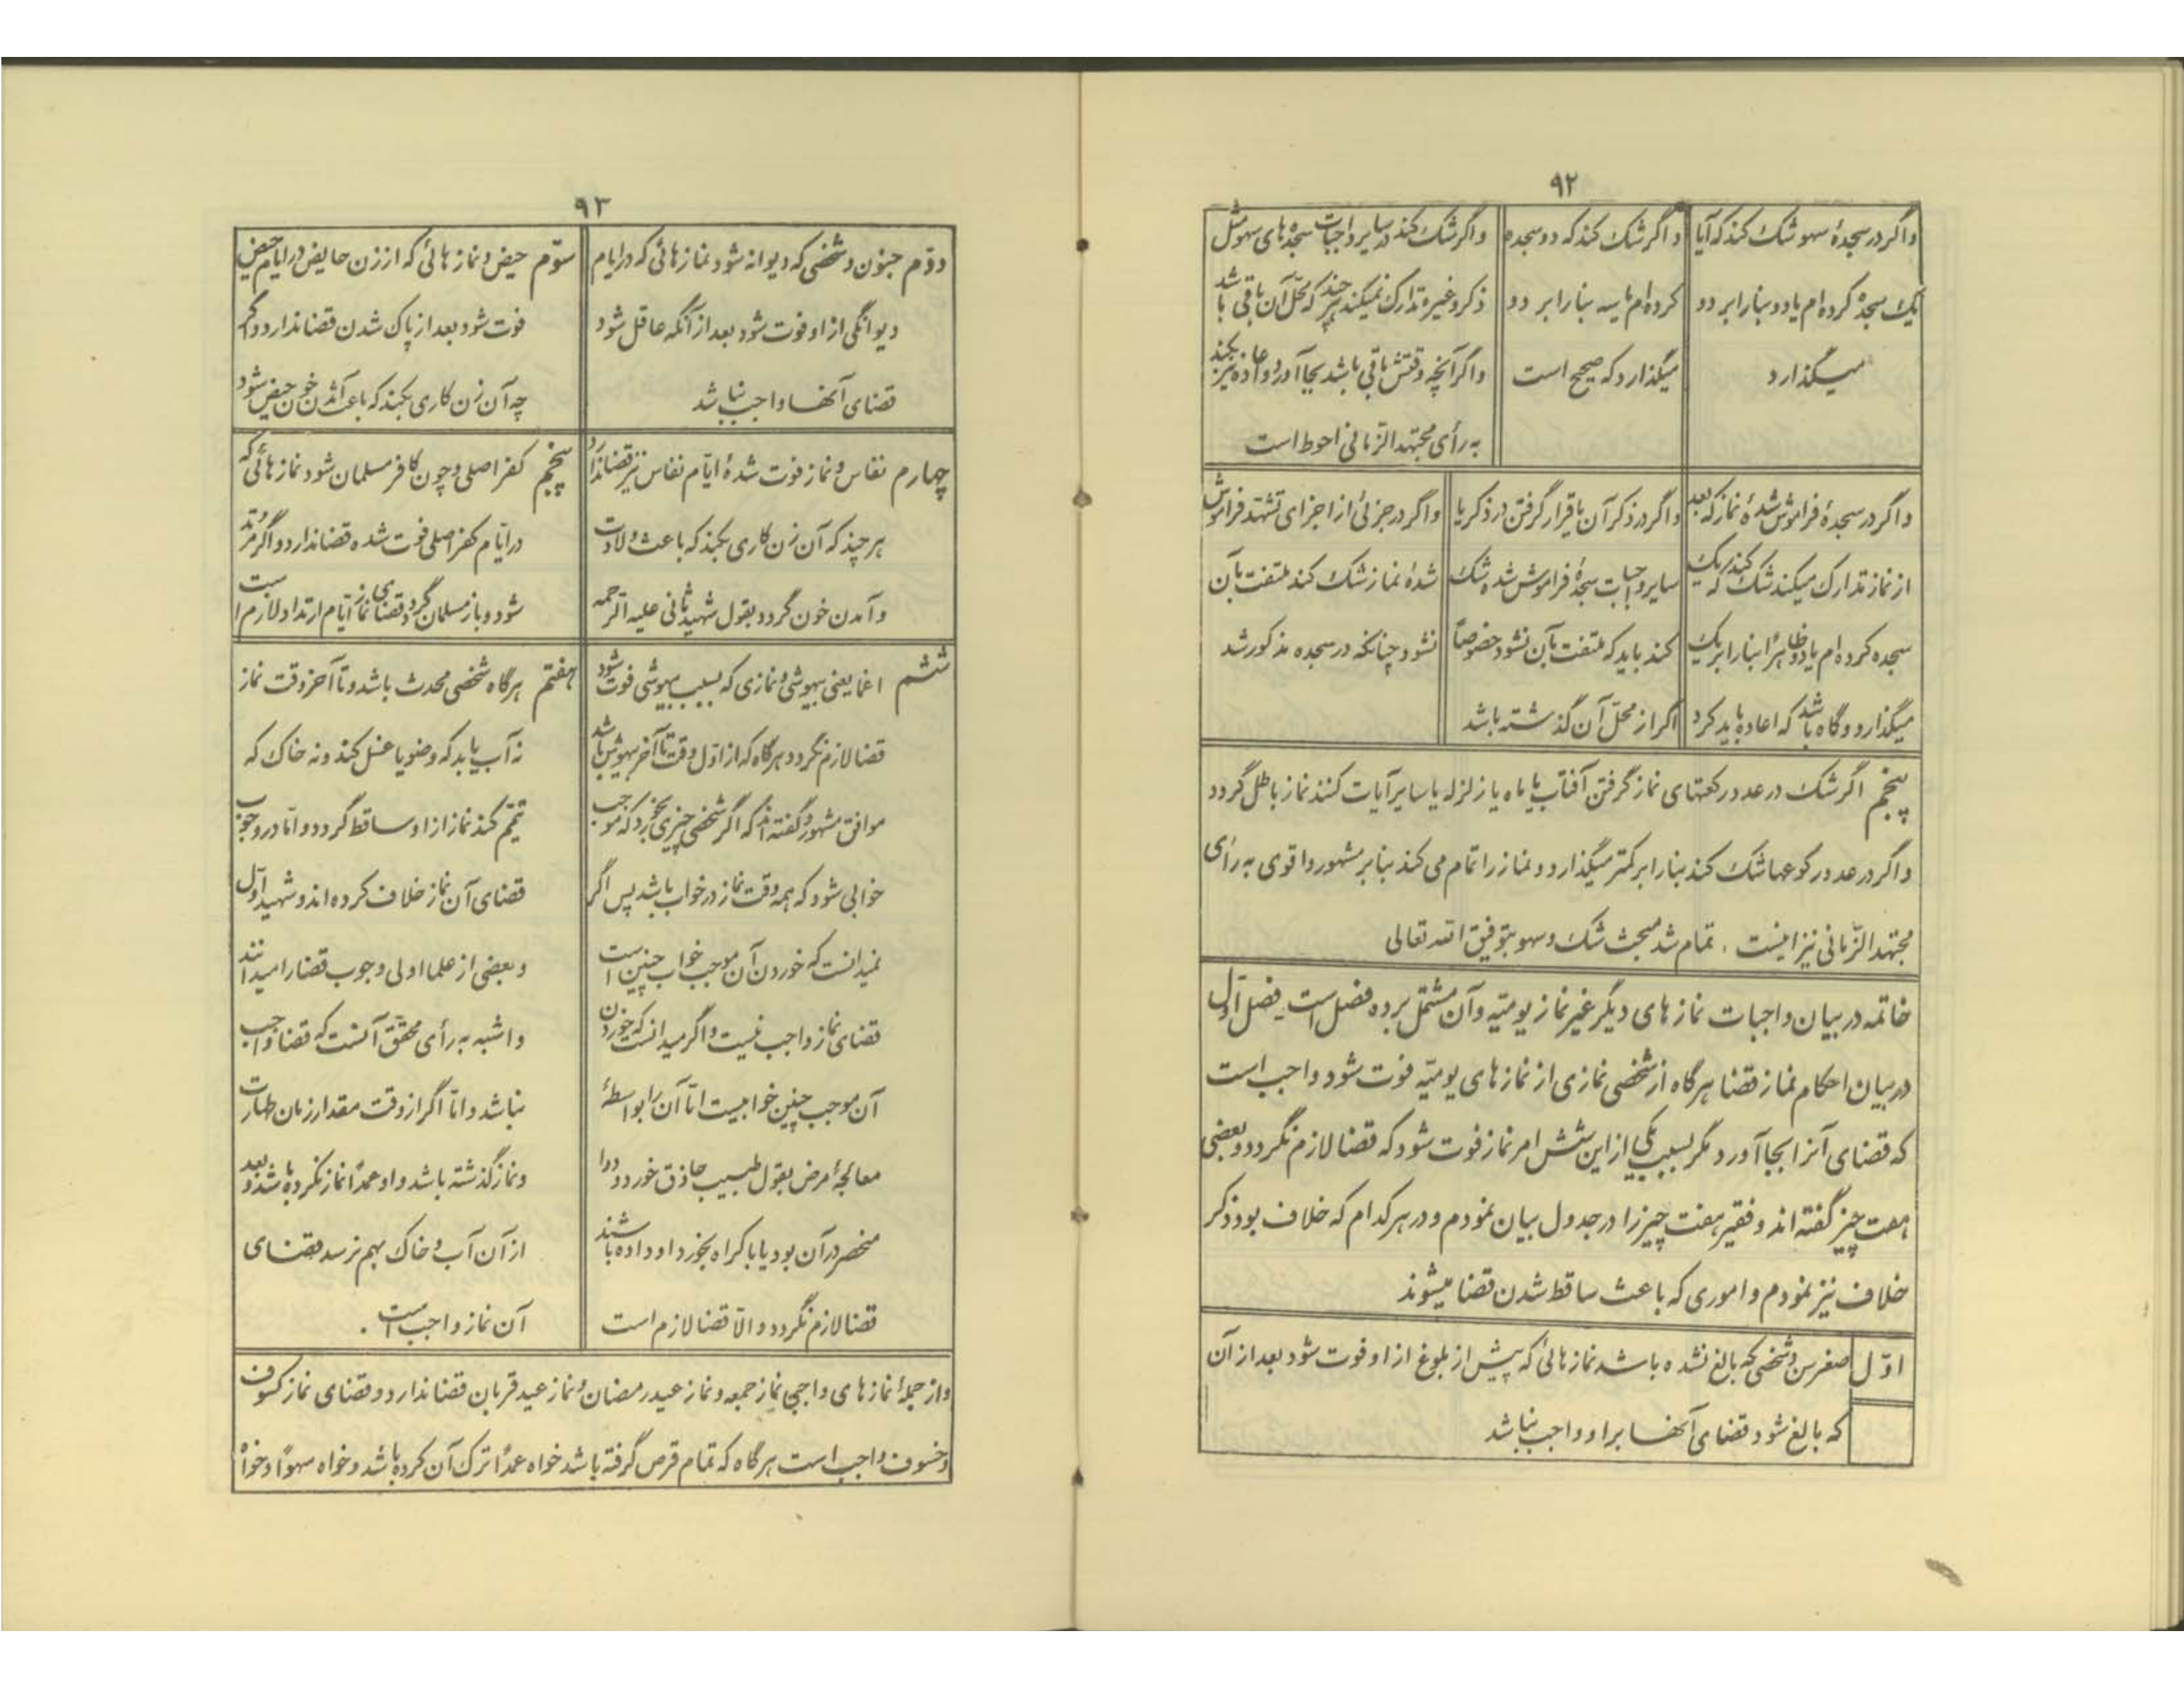 ۹۲
واگر در سجدهٔ سهو شک کند که آیا
یک سجده کرده ام یا دو بنا را بر دو
میگذارد
واگر شک کند که دو سجده
کرده ام یا سه بنا را بر دو
میگذارد که صحیح است
واگر شک کند در سایر واجبات سجده های سهو مثل
ذکر و غیره تدارک نمیکند هر چند که محل آن باقی باشد
واگر آنچه وقتش باقی باشد بجا آورد و اعاده نیز بکند
به رأی مجتهد الزمانی احوط است
واگر در سجدهٔ فراموش شدهٔ نماز که بعد
از نماز تدارک میکند شک کند که یک
سجده کرده ام یا دو ظاهراً بنا را بر یک
میگذارد و گاه باشد که اعاده باید کرد
واگر در ذکر آن یا قرار گرفتن در ذکر یا
سایر واجبات سجدهٔ فراموش شده شک
کند باید که ملتفت بآن نشود خصوصاً
اگر از محلّ آن گذشته باشد
واگر در جزئی از اجزای تشهد فراموش
شدهٔ نماز شک کند ملتفت بآن
نشود چنانکه در سجده مذکور شد
پنجم اگر شک در عدد رکعتهای نماز گرفتن آفتاب یا ماه یا زلزله یا سایر آیات کند نماز باطل گردد
واگر در عدد رکوعها شک کند بنا را بر کمتر میگذارد و نماز را تمام می کند بنا بر مشهور و اقوی به رأی
مجتهد الزّمانی نیز اینست . تمام شد مبحث شک و سهو بتوفیق الله تعالی
خاتمه در بیان واجبات نماز های دیگر غیر نماز یومیّه و آن مشتمل بر ده فصل است ـ فصل اوّل
در بیان احکام نماز قضا هرگاه از شخصی نمازی از نماز های یومیّه فوت شود واجب است
که قضای آنرا بجا آورد مگر بسبب یکی از این شش امر نماز فوت شود که قضا لازم نگردد و بعضی
هفت چیز گفته اند و فقیر هفت چیز را در جدول بیان نمودم و در هر کدام که خلاف بود ذکر
خلاف نیز نمودم و اموری که باعث ساقط شدن قضا میشوند
اوّل صغر سن و شخصی که بالغ نشده باشد نماز هائی که پیش از بلوغ از او فوت شود بعد از آن
که بالغ شود قضای آنها بر او واجب نباشد
۹۳
دوّم جنون و شخصی که دیوانه شود نماز هائی که در ایام
دیوانگی از او فوت شود بعد از آنکه عاقل شود
قضای آنها واجب نباشد
سوّم حیض و نماز هائی که از زن حایض در ایام حیض
فوت شود بعد از پاک شدن قضا ندارد و اگر
چه آن زن کاری بکند که باعث آمدن خون حیض شود
چهارم نفاس و نماز فوت شدهٔ ایّام نفاس نیز قضا ندارد
هر چند که آن زن کاری بکند که باعث ولادت
و آمدن خون گردد بقول شهید ثانی علیه الرحمه
پنجم کفر اصلی و چون کافر مسلمان شود نماز هائی که
در ایّام کفر اصلی فوت شده قضا ندارد و اگر مرتد
شود و باز مسلمان گردد قضای نماز ایّام ارتداد لازم است
ششم اغما یعنی بیهوشی و نمازی که بسبب بیهوشی فوت شود
قضا لازم نگردد هرگاه که از اوّل وقت تا آخر بیهوش باشد
موافق مشهور و گفته اند که اگر شخصی چیزی بخورد که موجب
خوابی شود که همه وقت نماز در خواب باشد پس اگر
نمیدانست که خوردن آن موجب خواب چنین است
قضای نماز واجب نیست و اگر میدانست که خوردن
آن موجب چنین خوابیست امّا آن را بواسطهٔ
معالجهٔ مرض بقول طبیب حاذق خورد و دوا
منحصر در آن بود یا باکراه بخورد او داده باشند
قضا لازم نگردد و الّا قضا لازم است
هفتم هرگاه شخصی محدث باشد و تا آخر وقت نماز
نه آب یابد که وضو یا غسل کند و نه خاک که
تیمّم کند نماز از او ساقط گردد و امّا در وجوب
قضای آن نماز خلاف کرده اند و شهید اوّل
و بعضی از علما اولی وجوب قضا را میدانند
و اشبه به رأی محقّق آنست که قضا واجب
نباشد و امّا اگر از وقت مقدار زمان طهارت
و نماز گذشته باشد و او عمداً نماز نکرده باشد و بعد
از آن آب و خاک بهم نرسد قضای
آن نماز واجب است .
و از جملهٔ نماز های واجبی نماز جمعه و نماز عید رمضان و نماز عید قربان قضا ندارد و قضای نماز کسوف
و خسوف واجب است هرگاه که تمام قرص گرفته باشد خواه عمداً ترک آن کرده باشد و خواه سهواً و خواه